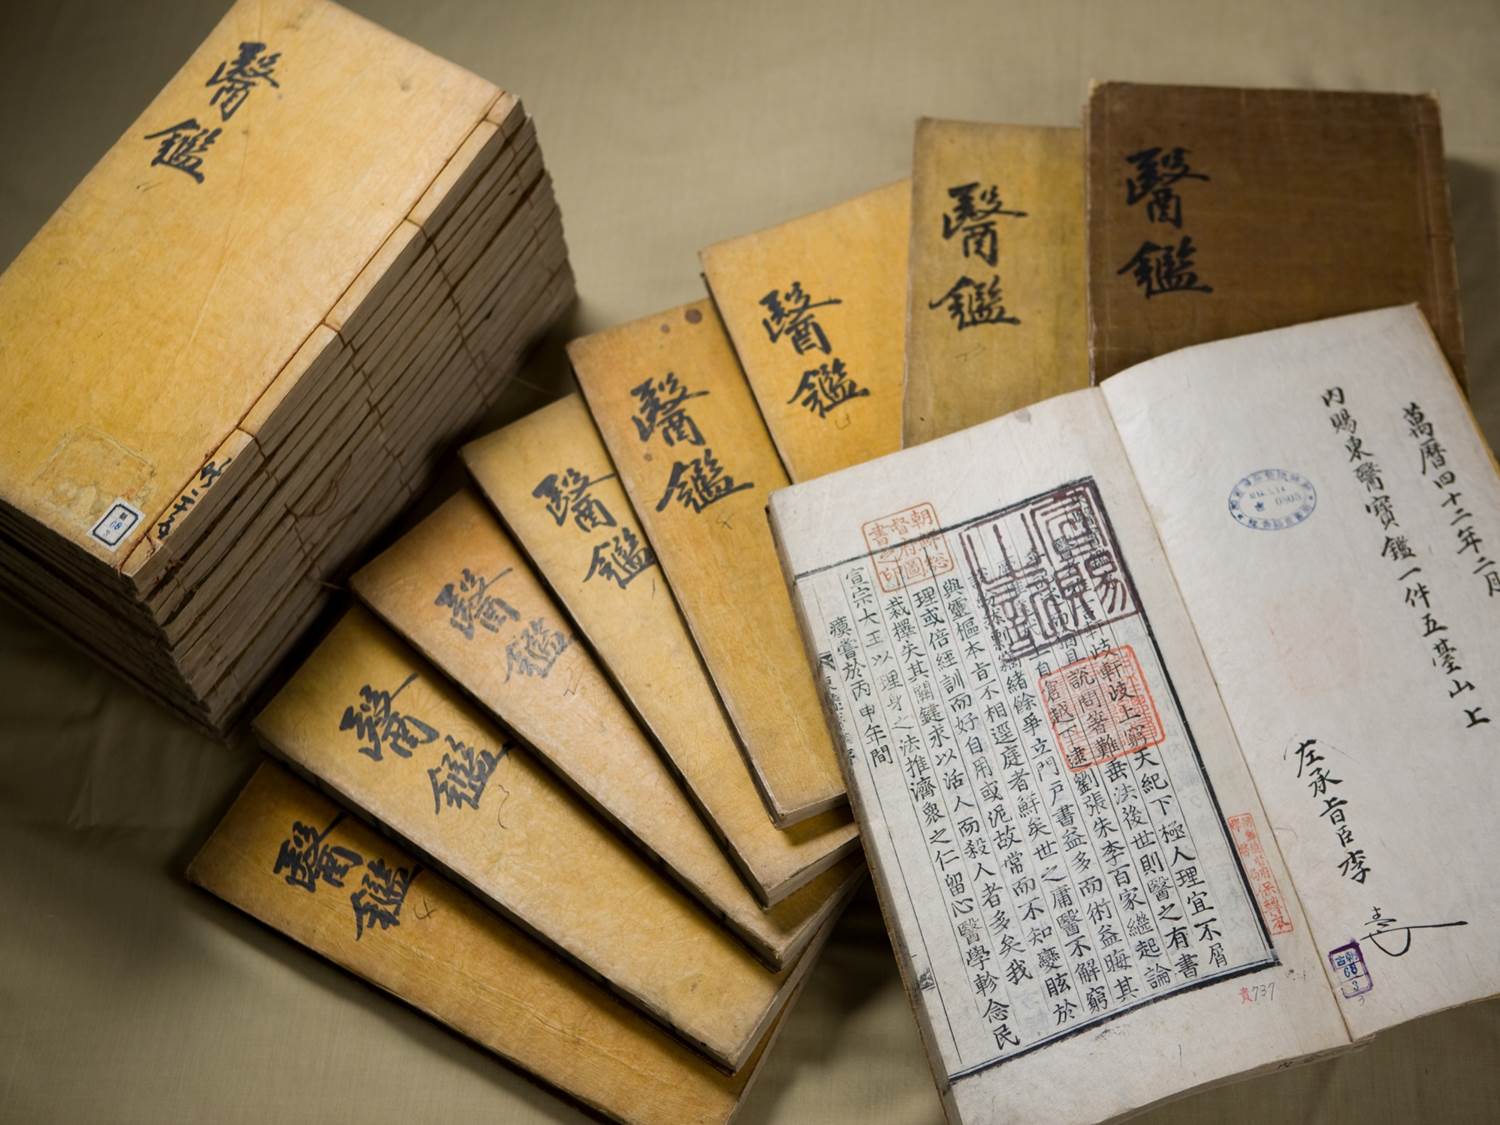 醫鑑
醫鑑
醫鑑
醫鑑
醫鑑
醫鑑
醫鑑
醫鑑
醫鑑
醫鑑
萬曆四十二年二月
內賜東醫寶鑑一件五臺山上
左承旨臣李
軒岐上窮天紀下極人理宜不屑
說問著難垂法後世則醫之有書
越下逮劉張朱李百家繼起論
緖餘爭立門戶書益多而術益晦其
與靈樞本旨不相逕庭者鮮矣世之庸醫不解窮
理或倍經訓而好自用或泥故常而不知變眩於
裁擇失其關鍵求以活人而殺人者多矣我
宣宗大王以理身之法推濟衆之仁留心醫學軫念民
瘼嘗於丙申年間
朝鮮總
督府圖
書之印
貴737